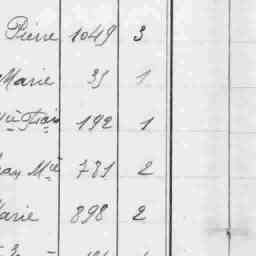 Pierre 1049 3
Marie 35 1
192 1
Mie 781 2
Marie 898 2